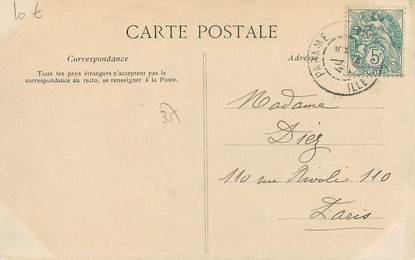 10 €
CARTE POSTALE
Correspondance
Tous les pays étrangers n'acceptent pas la
correspondance au recto, se renseigner à la Poste.
PARAMÉ
ILLE
5
35
Madame
Diez
110 rue Rivoli 110
Paris